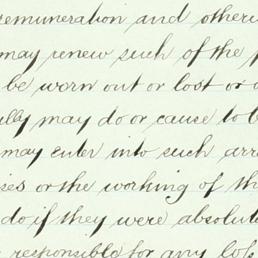 remuneration and otherw
may renew such of the p
be worn out or lost or d
ully may do or cause to b
may enter into such arr
ses or the working of th
do if they were absolut
responsible for any loss